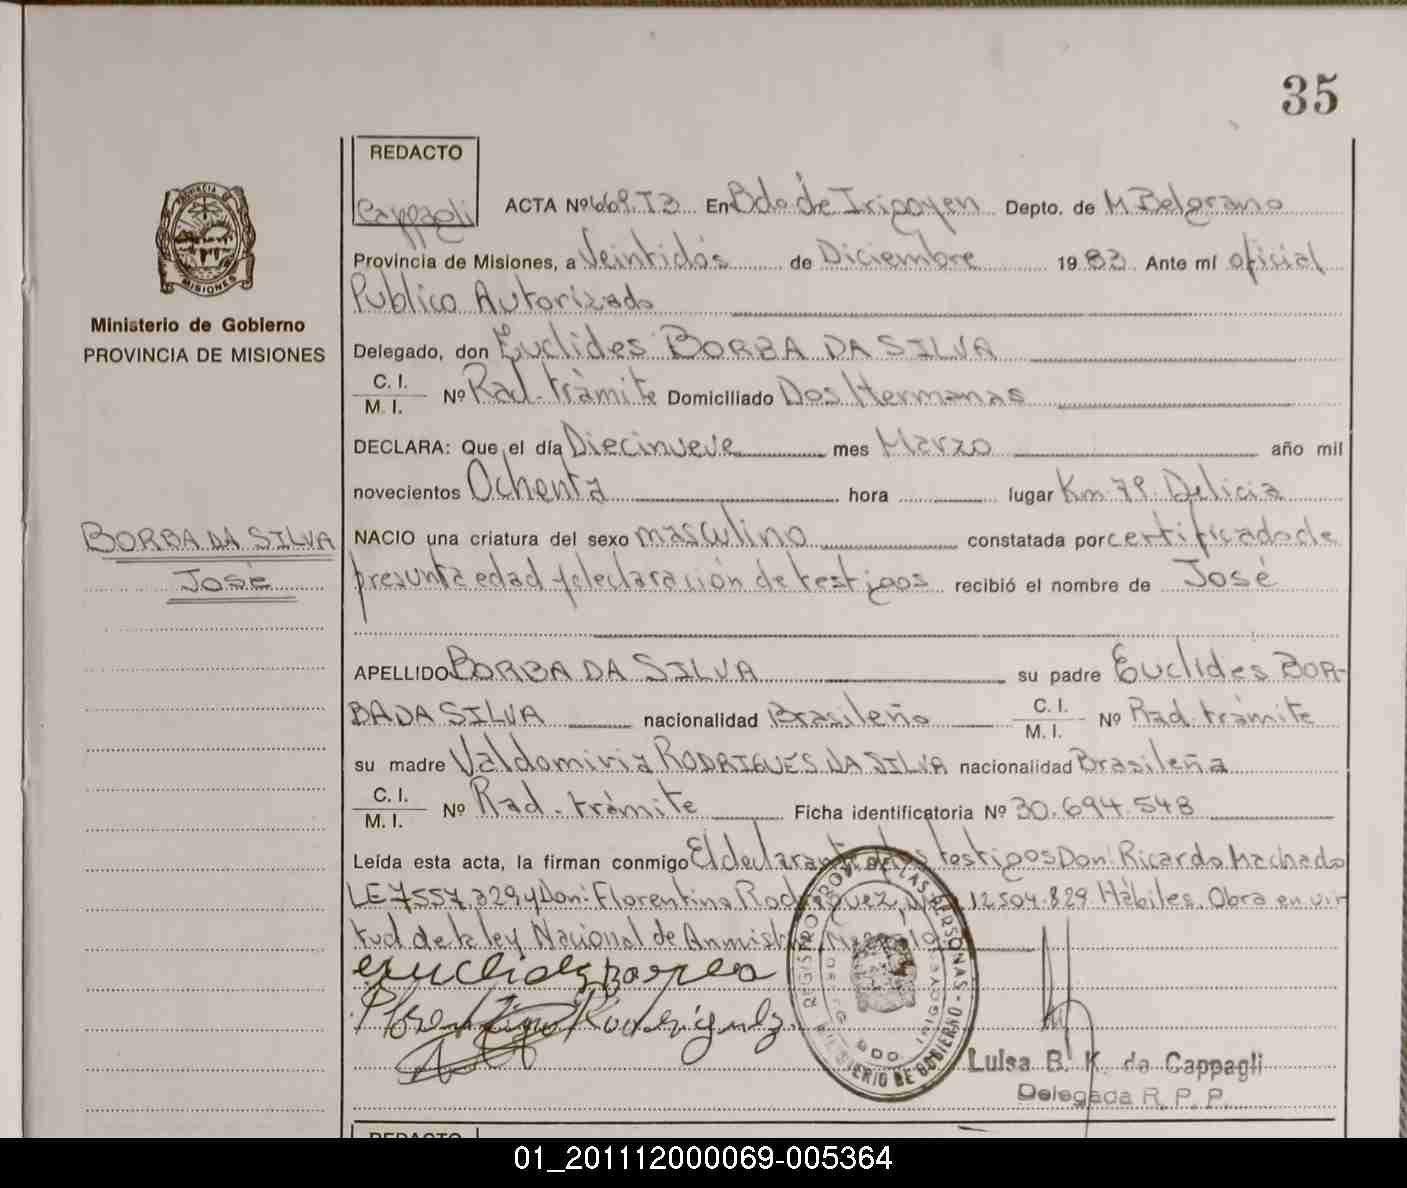 35
REDACTO
Cappagli
ACTA Nº 669.T3 En Bdo de Irigoyen Depto. de M Belgrano
Provincia de Misiones, a Veintidós de Diciembre 1983 Ante mí oficial
Publico Autorizado
Delegado, don Euclides BORBA DA SILVA
C. I.
M. I. Nº Rad. trámite Domiciliado Dos Hermanas
DECLARA: Que el día Diecinueve mes Marzo año mil
novecientos Ochenta hora lugar Km 79. Delicia
NACIO una criatura del sexo masculino constatada por certificado de
presunta edad y declaración de testigos recibió el nombre de José
APELLIDO BORBA DA SILVA su padre Euclides BOR-
BA DA SILVA nacionalidad Brasileño C. I.
M. I. Nº Rad. trámite
su madre Valdomiria RODRIGUES DA SILVA nacionalidad Brasileña
C. I.
M. I. Nº Rad. trámite Ficha identificatoria Nº 30.694.548
Leída esta acta, la firman conmigo El declarante los testigos Don: Ricardo Machado
LE 7557.329 y Don: Florentino Rodriguez, 12504.829. Hábiles. Obra en vir
tud de la ley Nacional de Anmist
Euclides Borba
Florentino Rodriguez
Luisa B. K. de Cappagli
Delegada R. P. P.
REGISTRO PROV. DE LAS PERSONAS - MINISTERIO DE GOBIERNO
BDO IRIGOYEN
PROVINCIA DE
MISIONES
Ministerio de Gobierno
PROVINCIA DE MISIONES
BORBA DA SILVA
José
REDACTO
01_201112000069-005364